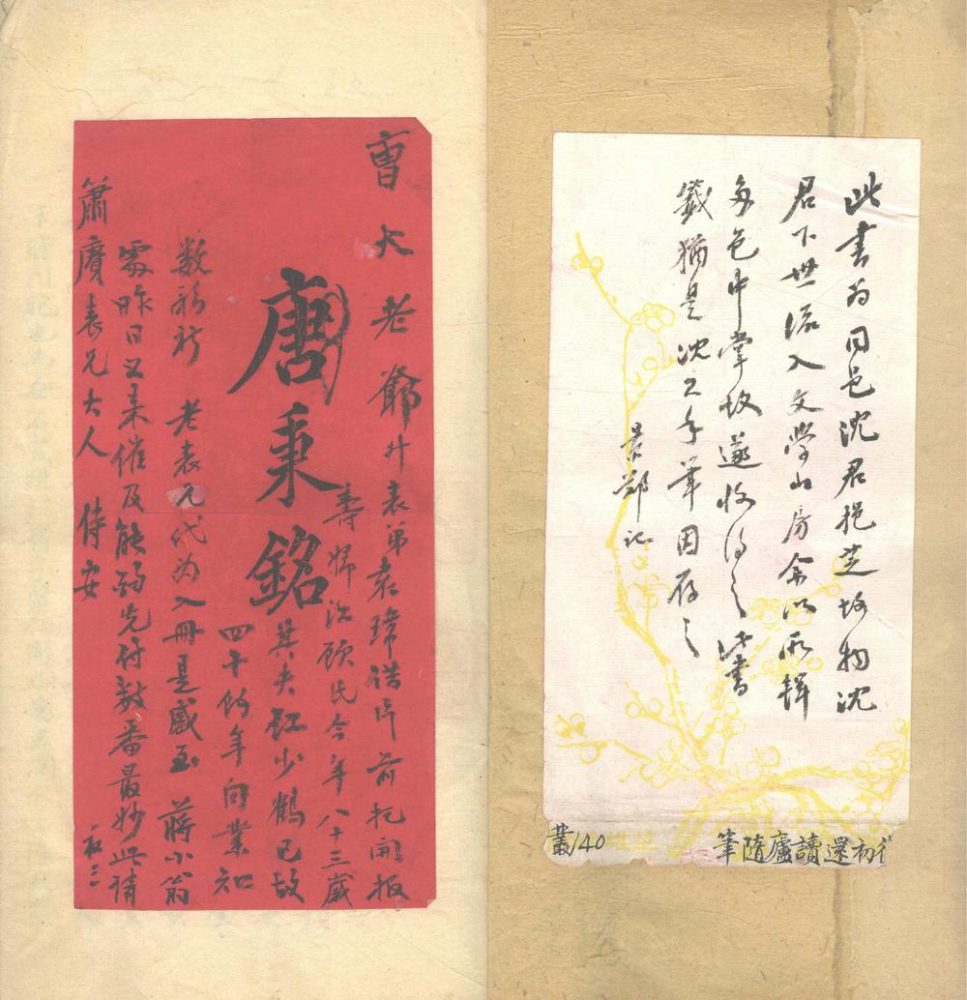 此書為同邑沈君挹芝故物沈
君下世流入文學山房余以所輯
多邑中掌故遂收得之此書
籤猶是沈之手筆因存之
景鄭記
初還讀廬隨筆
叢140
曹大老爺升 表弟袁瑋借片前托開報
壽婦江顧氏今年八十三歲
唐秉銘
其夫江少鶴已故
四十餘年向業
數 老表兄代為入冊是感 蔣小翁
處昨日又來催及能夠先付數番最妙此請
簫賡表兄大人 侍安
初三